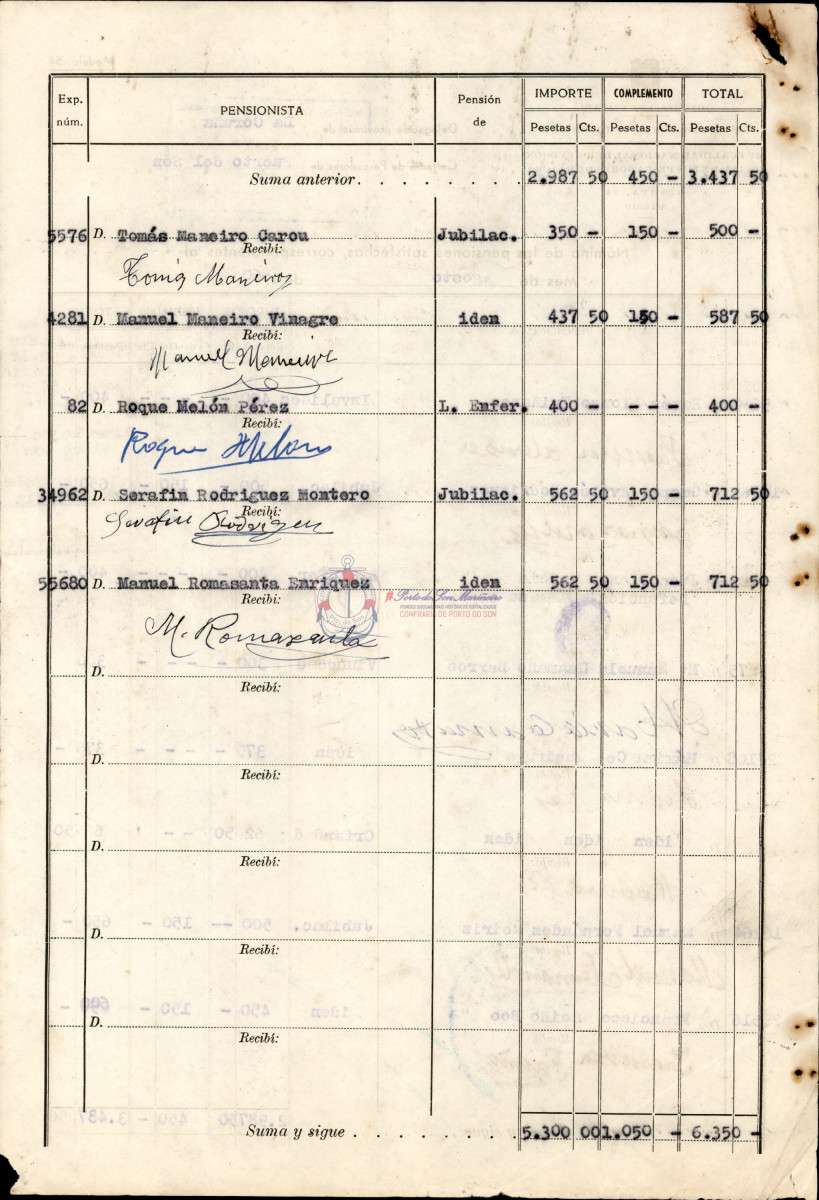 Exp. núm. PENSIONISTA Pensión de IMPORTE COMPLEMENTO TOTAL
Pesetas Cts. Pesetas Cts. Pesetas Cts.
Suma anterior. . . . . . . . 2.987 50 450 - 3.437 50
5576 D. Tomás Maneiro Carou Jubilac. 350 - 150 - 500 -
Recibí:
Maneiro
4281 D. Manuel Maneiro Vinagre iden 437 50 150 - 587 50
Recibí:
Manuel Maneiro
82 D. Roque Melón Pérez L. Enfer. 400 - - - - 400 -
Recibí:
Roque Melón
34962 D. Serafin Rodriguez Montero Jubilac. 562 50 150 - 712 50
Recibí:
Serafin Rodriguez
55680 D. Manuel Romasanta Enriquez iden 562 50 150 - 712 50
Recibí:
Porto do Son Mariñeiro
FONDOS DOCUMENTAIS HISTÓRICOS DIXITALIZADOS
CONFRARÍA DE PORTO DO SON
M. Romasanta
D.
Recibí:
D.
Recibí:
D.
Recibí:
D.
Recibí:
D.
Recibí:
Suma y sigue . . . . . . . . 5.300 00 1.050 - 6.350 -